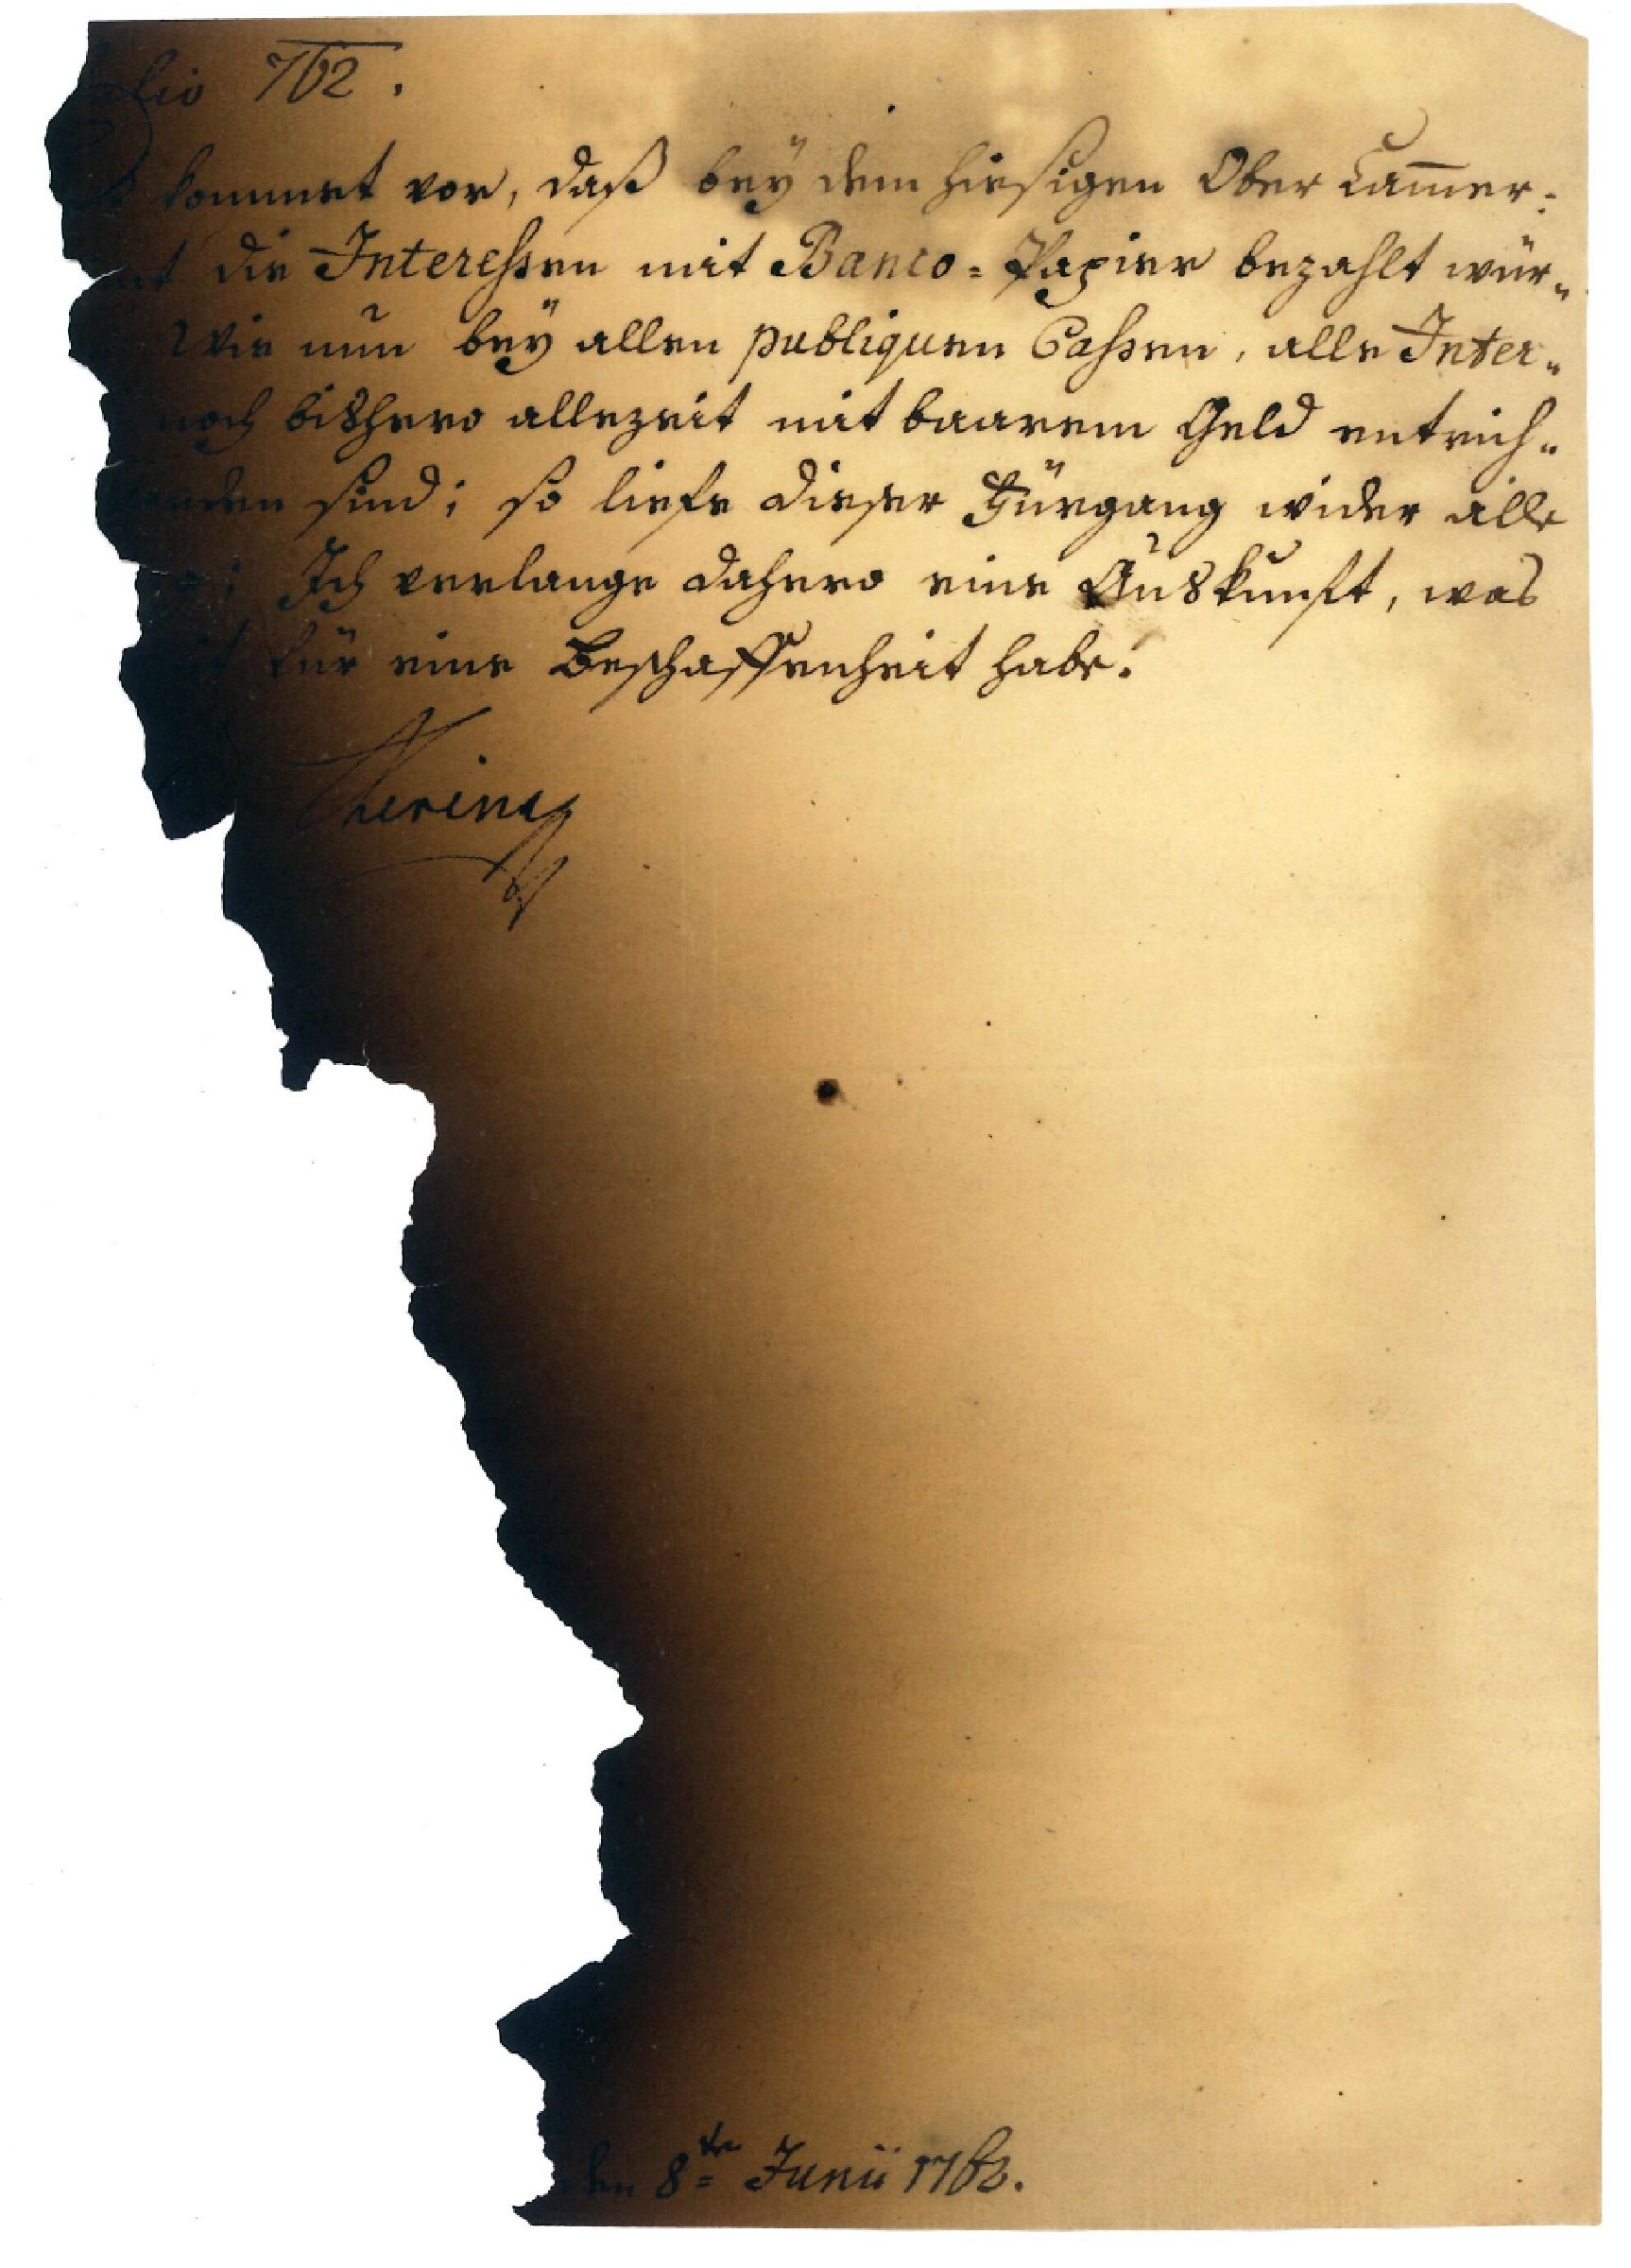 Julio 762.
kommet vor, daß bey dem hiesigen Ober Cam̅er-
die Interessen mit Banco-Papier bezahlt wür-
Wie nun bey allen publiquen Cassen, alle Inter-
noch bishero allezeit mit baarem Geld entrich-
sind; so liefe dieser Fürgang wider alle
Ich verlange dahero eine Auskunft, was
für eine Beschaffenheit habe.
Theresia
den 8ten Junii 1762.